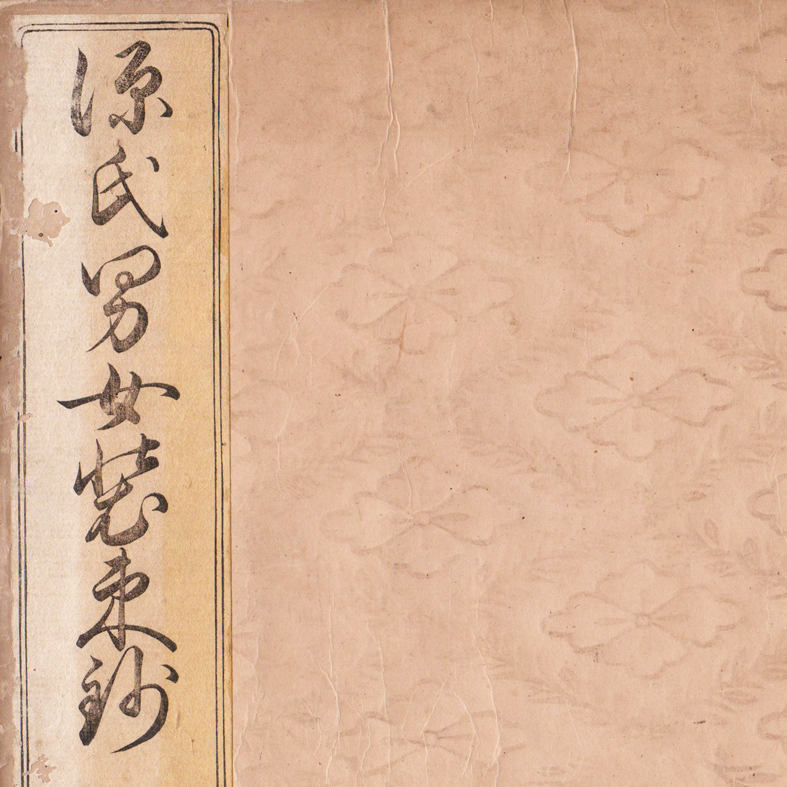 源氏男女装束鈔